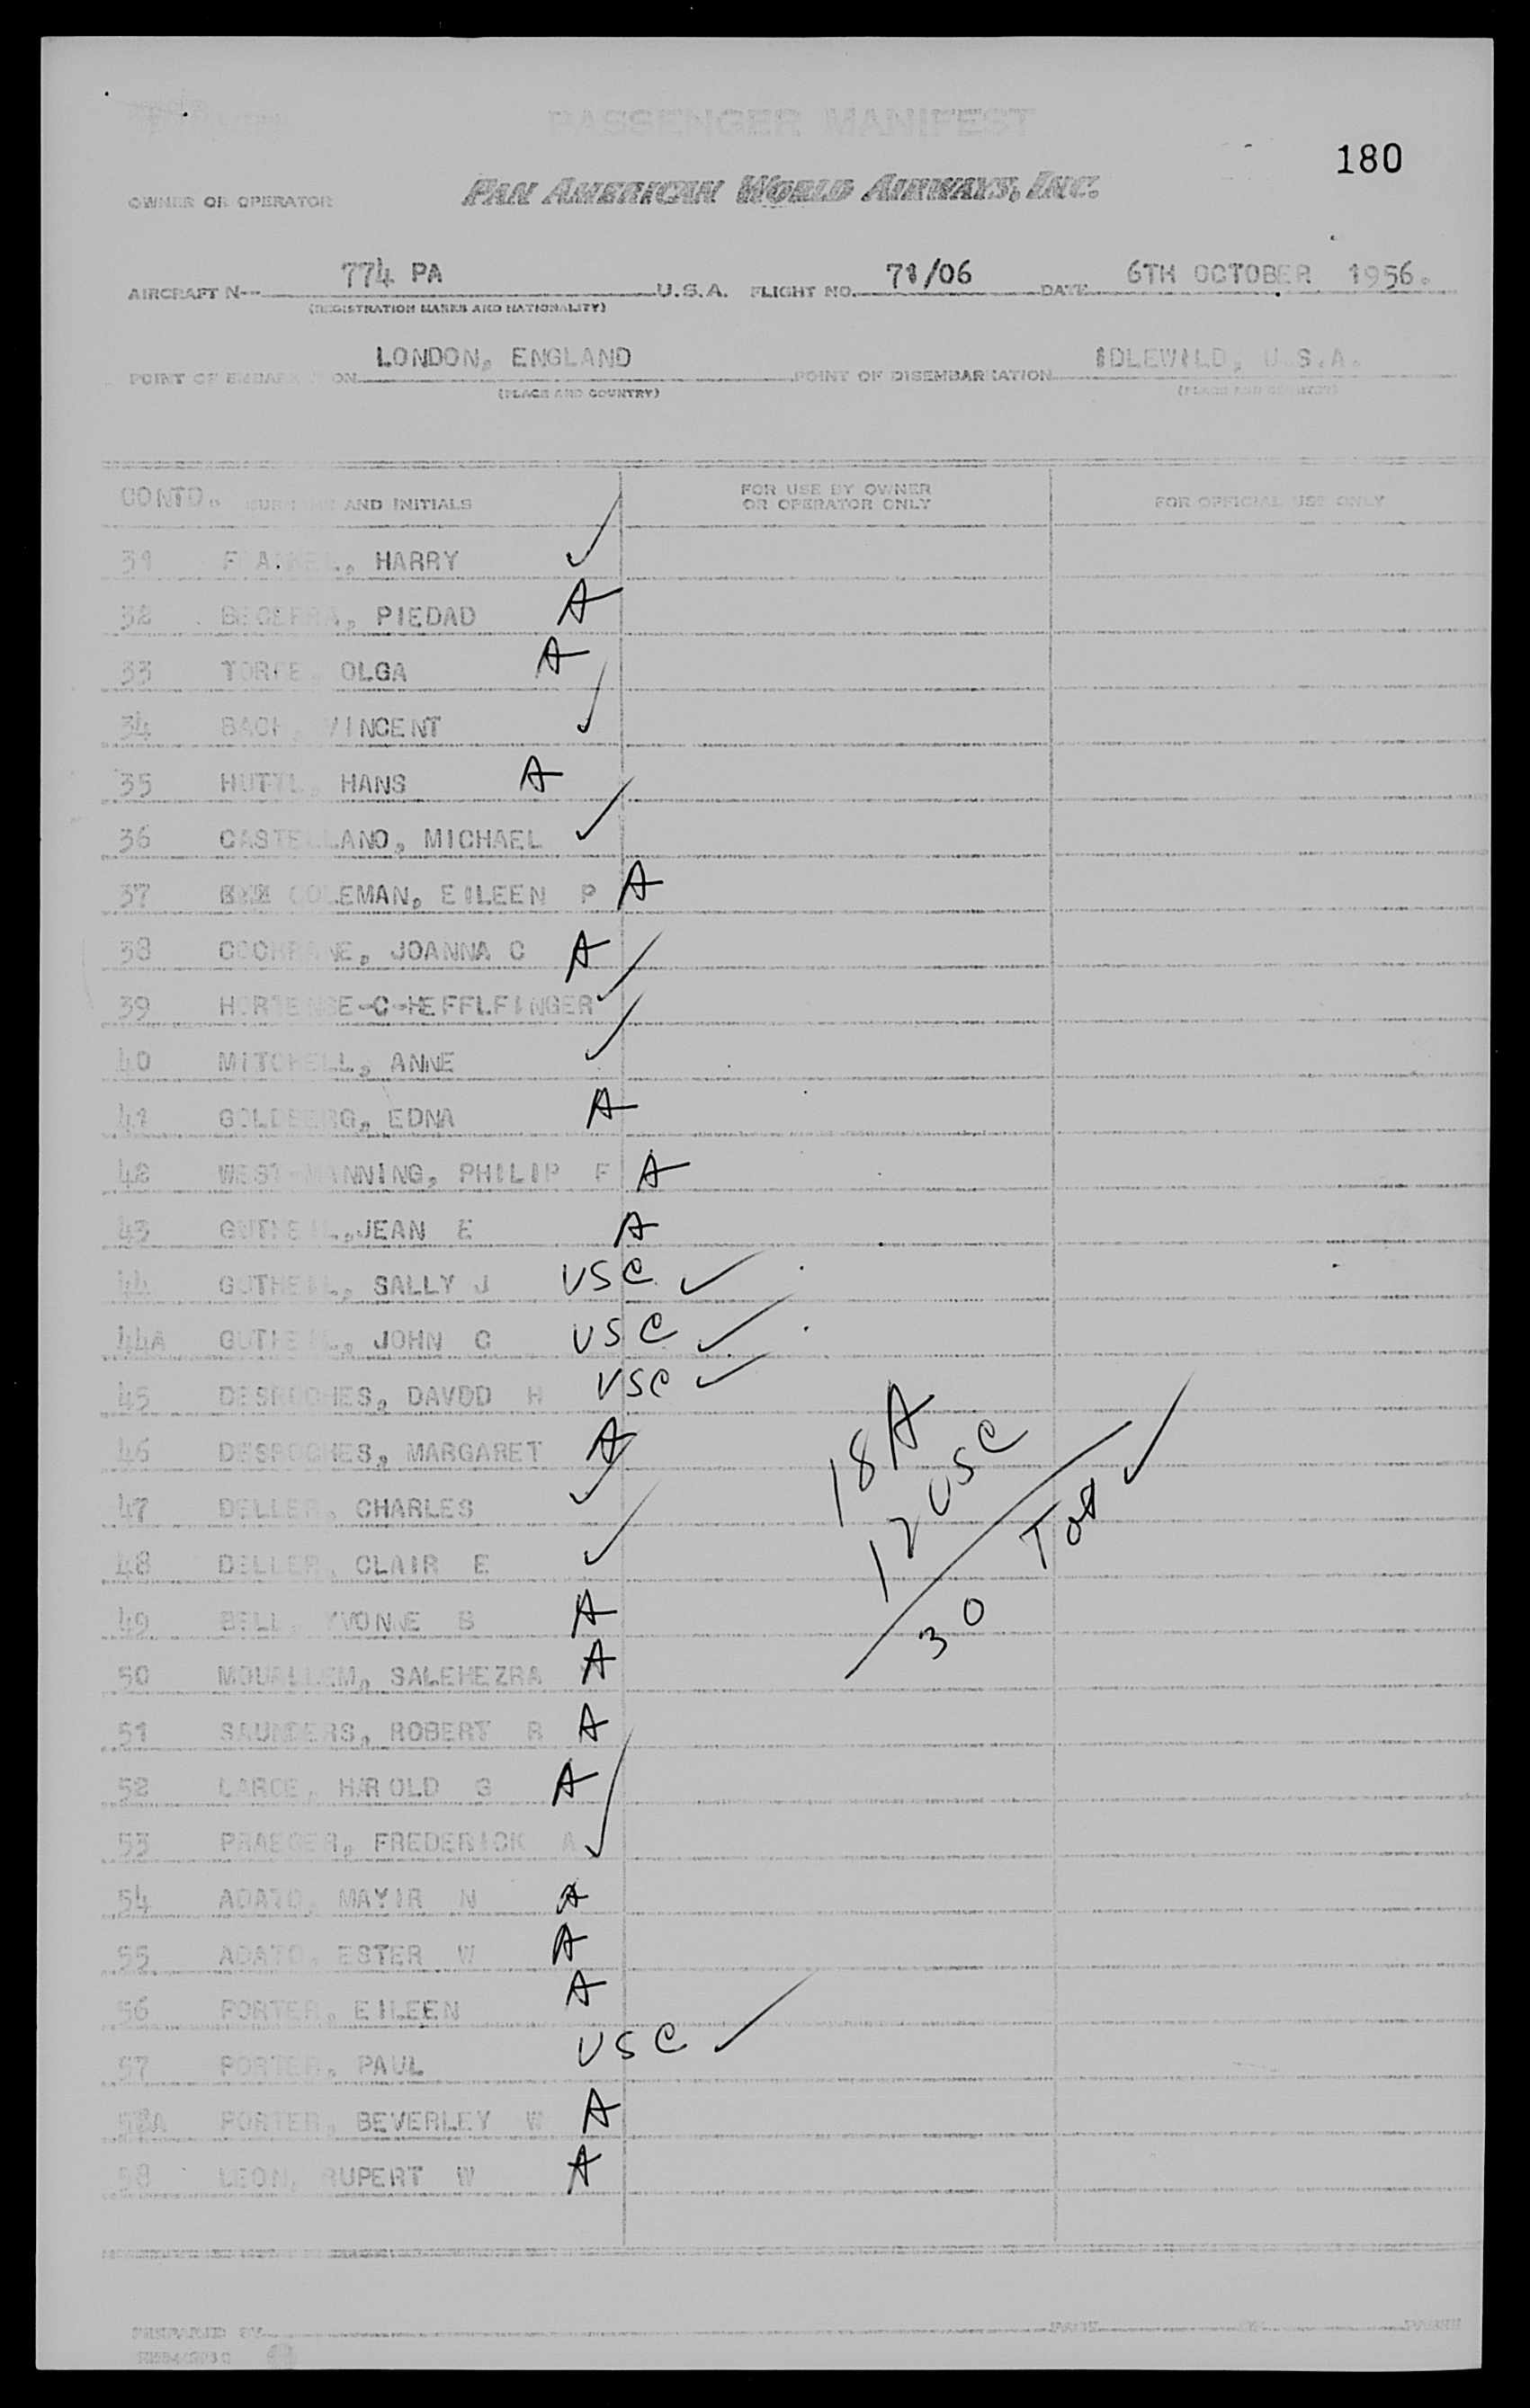 PASSENGER MANIFEST
180
OWNER OR OPERATOR PAN AMERICAN WORLD AIRWAYS, INC.
AIRCRAFT N 774 PA U.S.A. FLIGHT NO. 71/06 DATE 6TH OCTOBER 1956.
(REGISTRATION MARKS AND NATIONALITY)
POINT OF EMBARKATION LONDON, ENGLAND POINT OF DISEMBARKATION IDLEWILD, U.S.A.
(PLACE AND COUNTRY) (PLACE AND COUNTRY)
CONTD. SURNAME AND INITIALS FOR USE BY OWNER OR OPERATOR ONLY FOR OFFICIAL USE ONLY
31 HARRY ✓
32 BECERRA, PIEDAD A
33 OLGA A
34 BACH, VINCENT ✓
35 HUTTL, HANS A
36 CASTELLANO, MICHAEL ✓
37 COLEMAN, EILEEN P A
38 COCHRANE, JOANNA C A
39 HORTENSE-C-HEFFLFINGER ✓
40 MITCHELL, ANNE ✓
41 GOLDBERG, EDNA A
42 WEST-MANNING, PHILIP F A
43 GUTHEIL, JEAN E A
44 GUTHEIL, SALLY J USC ✓
44A GUTHEIL, JOHN C USC ✓
45 DESROCHES, DAVOD H USC ✓
46 DESROCHES, MARGARET A
47 DELLER, CHARLES ✓
48 DELLER, CLAIR E ✓
49 BELL, YVONNE B A
50 MOUALLEM, SALEHEZRA A
51 SAUNDERS, ROBERT R A
52 LARGE, HAROLD G A
53 PRAEGER, FREDERICK A ✓
54 ADATO, MAYIR N A
55 ADATO, ESTER W A
56 PORTER, EILEEN A
57 PORTER, PAUL USC ✓
57A PORTER, BEVERLEY W A
58 LEON, RUPERT W A
18 A
12 USC
30 Tot ✓
PREPARED BY